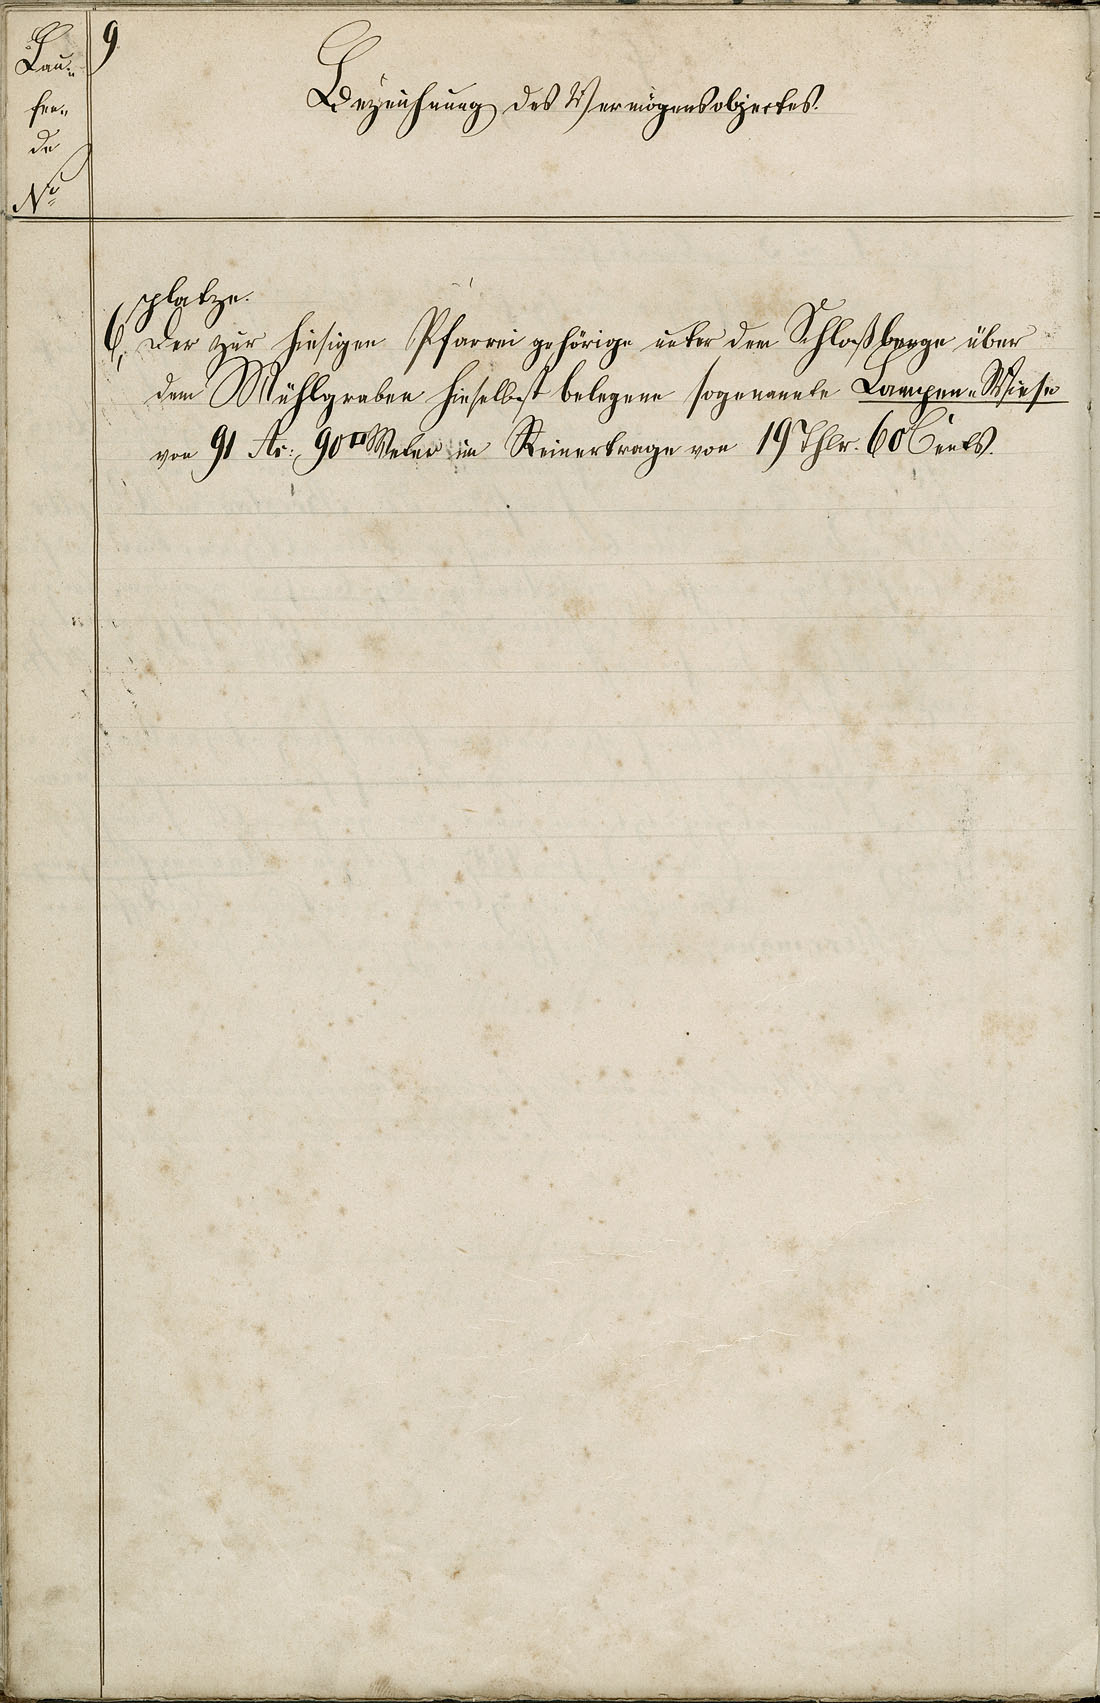 9
Lau-
fen-
de
No
Bezeichnung des Vermögensobjectes.
platze.
6, Der zur hiesigen Pfarrei gehörige unter dem Schloßberge über
dem Mühlgraben hieselbst belegene sogenannte Lampen-Wiese
von 91 Ar: 90 □Meter im Reinertrage von 19 Thlr. 60 Cents.